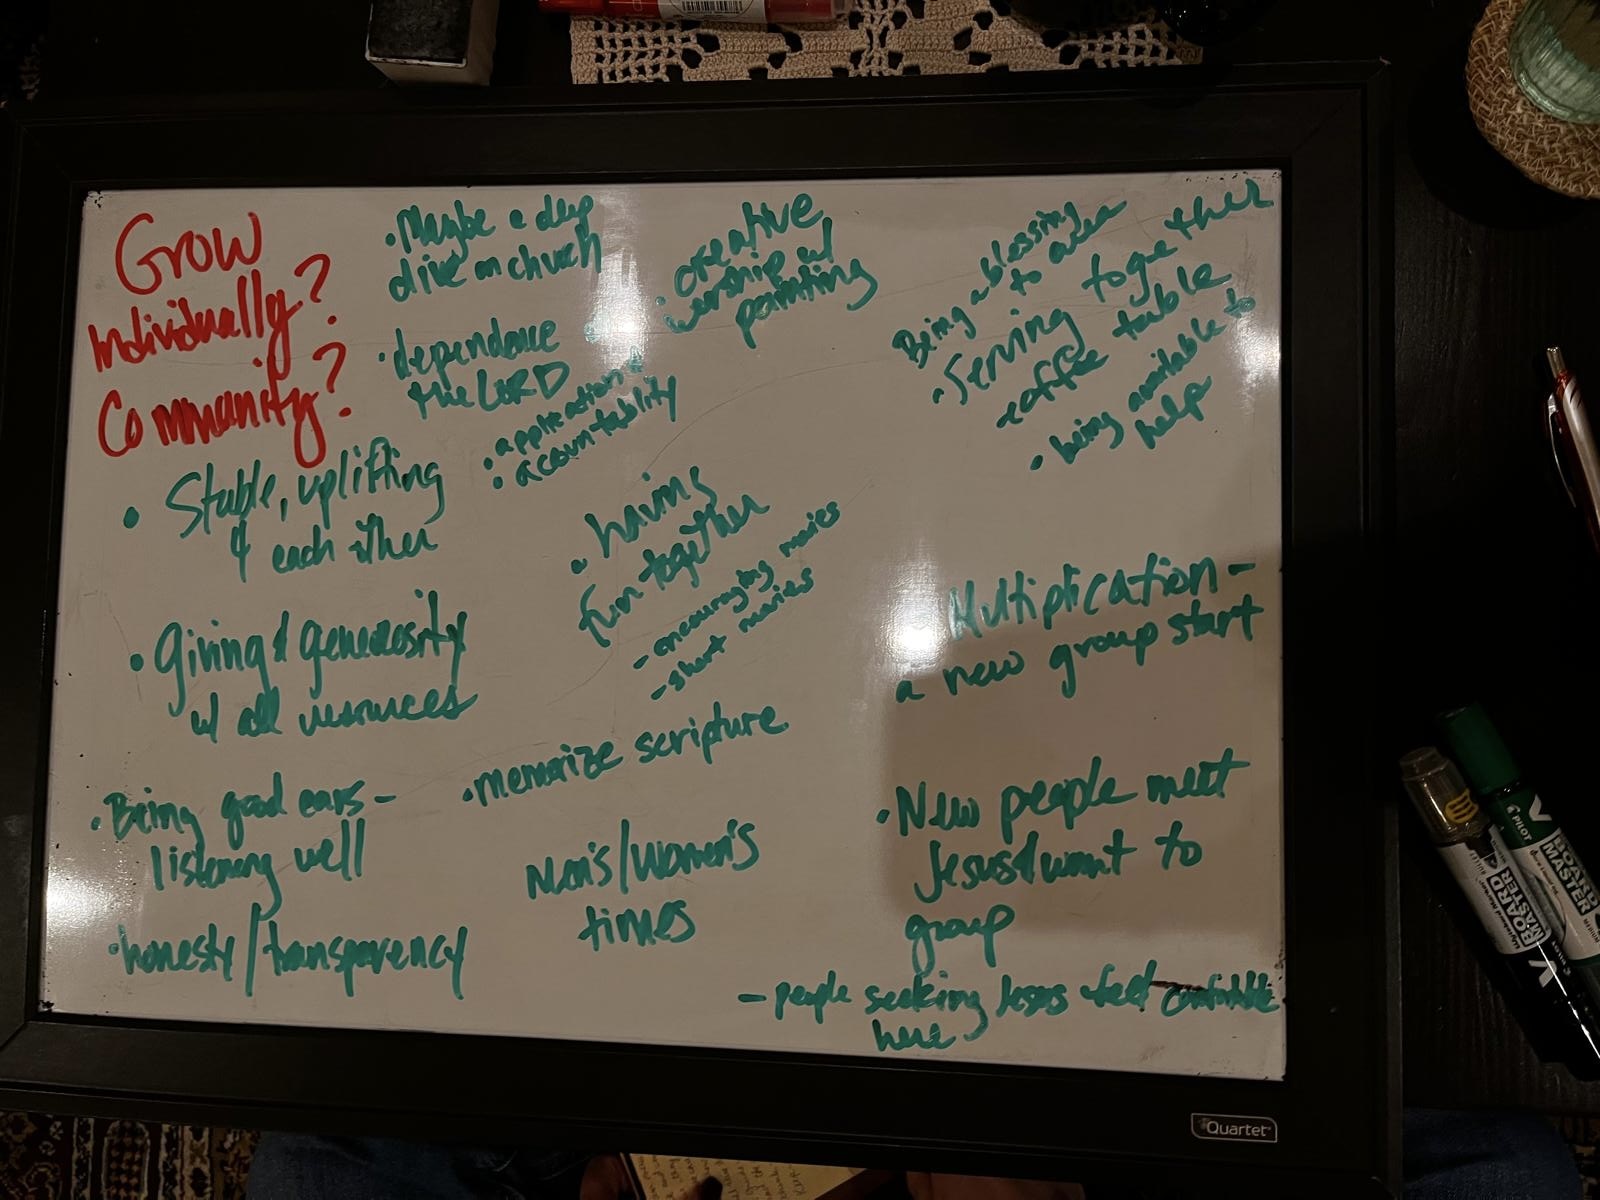 Grow
Individually?
Community?
• Stable, uplifting
& each other
• Giving & generosity
w/ all resources
• Being good ears -
listening well
• honesty/transparency
• Maybe a deep
dive on church
• dependence
the LORD
• application &
• accountability
• creative
worship w/
painting
• having
fun together
- encouraging movies
- short movies
• memorize scripture
Men's/Women's
times
Being a blessing
to area
• Serving together
coffee table
• being available to
help
Multiplication -
a new group start
• New people meet
Jesus & want to
group
- people seeking Jesus feel comfortable
here
Quartet
PILOT
BOARD
MASTER
BOARD
MASTER